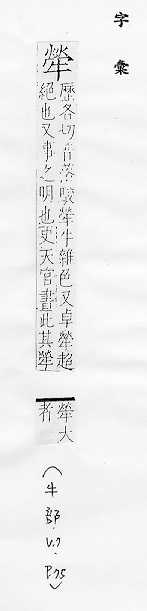 字彙
犖
歷各切音落駁犖牛雜色又卓犖超
絕也又事之明也史天官書此其犖
犖大
者
(牛部.V.7.P.75)